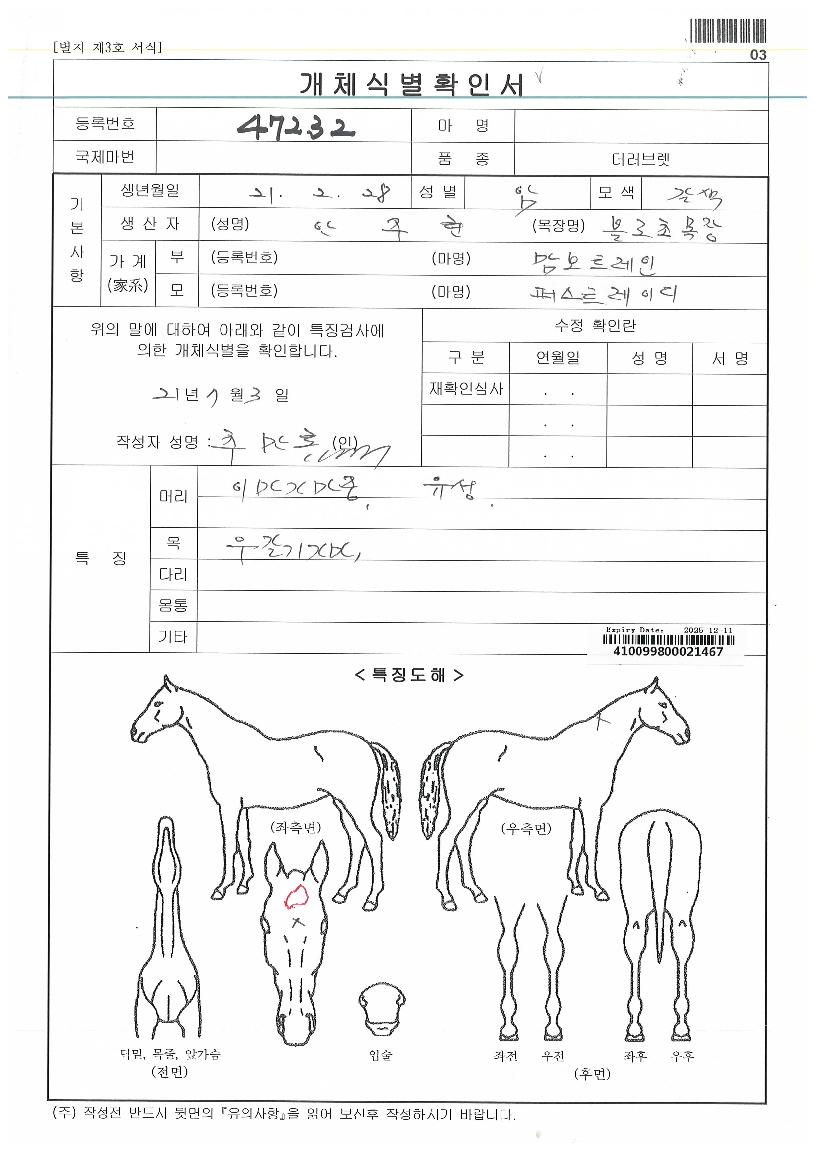 [별지 제3호 서식]
03
개체식별확인서
등록번호 47232 마 명
국제마번 품 종 더러브렛
기본사항
생년월일 21. 2. 28 성 별 암 모 색 갈색
생 산 자 (성명) 안 주 현 (목장명) 불로초목장
가 계 (家系) 부 (등록번호) (마명) 맘모트레인
모 (등록번호) (마명) 퍼스트레이디
위의 말에 대하여 아래와 같이 특징검사에
의한 개체식별을 확인합니다.
21년 7월 3일
작성자 성명 : (인)
수정 확인란
구 분 연월일 성 명 서 명
재확인심사 . .
. .
. .
특 징
머리 유성.
목
다리
몽통
기타
Expiry Date: 2025-12-11
410099800021467
< 특징도해 >
(좌측면) (우측면)
턱밑, 목줄, 앞가슴
(전면)
입술
좌전 우전 좌후 우후
(후면)
(주) 작성전 반드시 뒷면의 『유의사항』을 읽어 보신후 작성하시기 바랍니다.